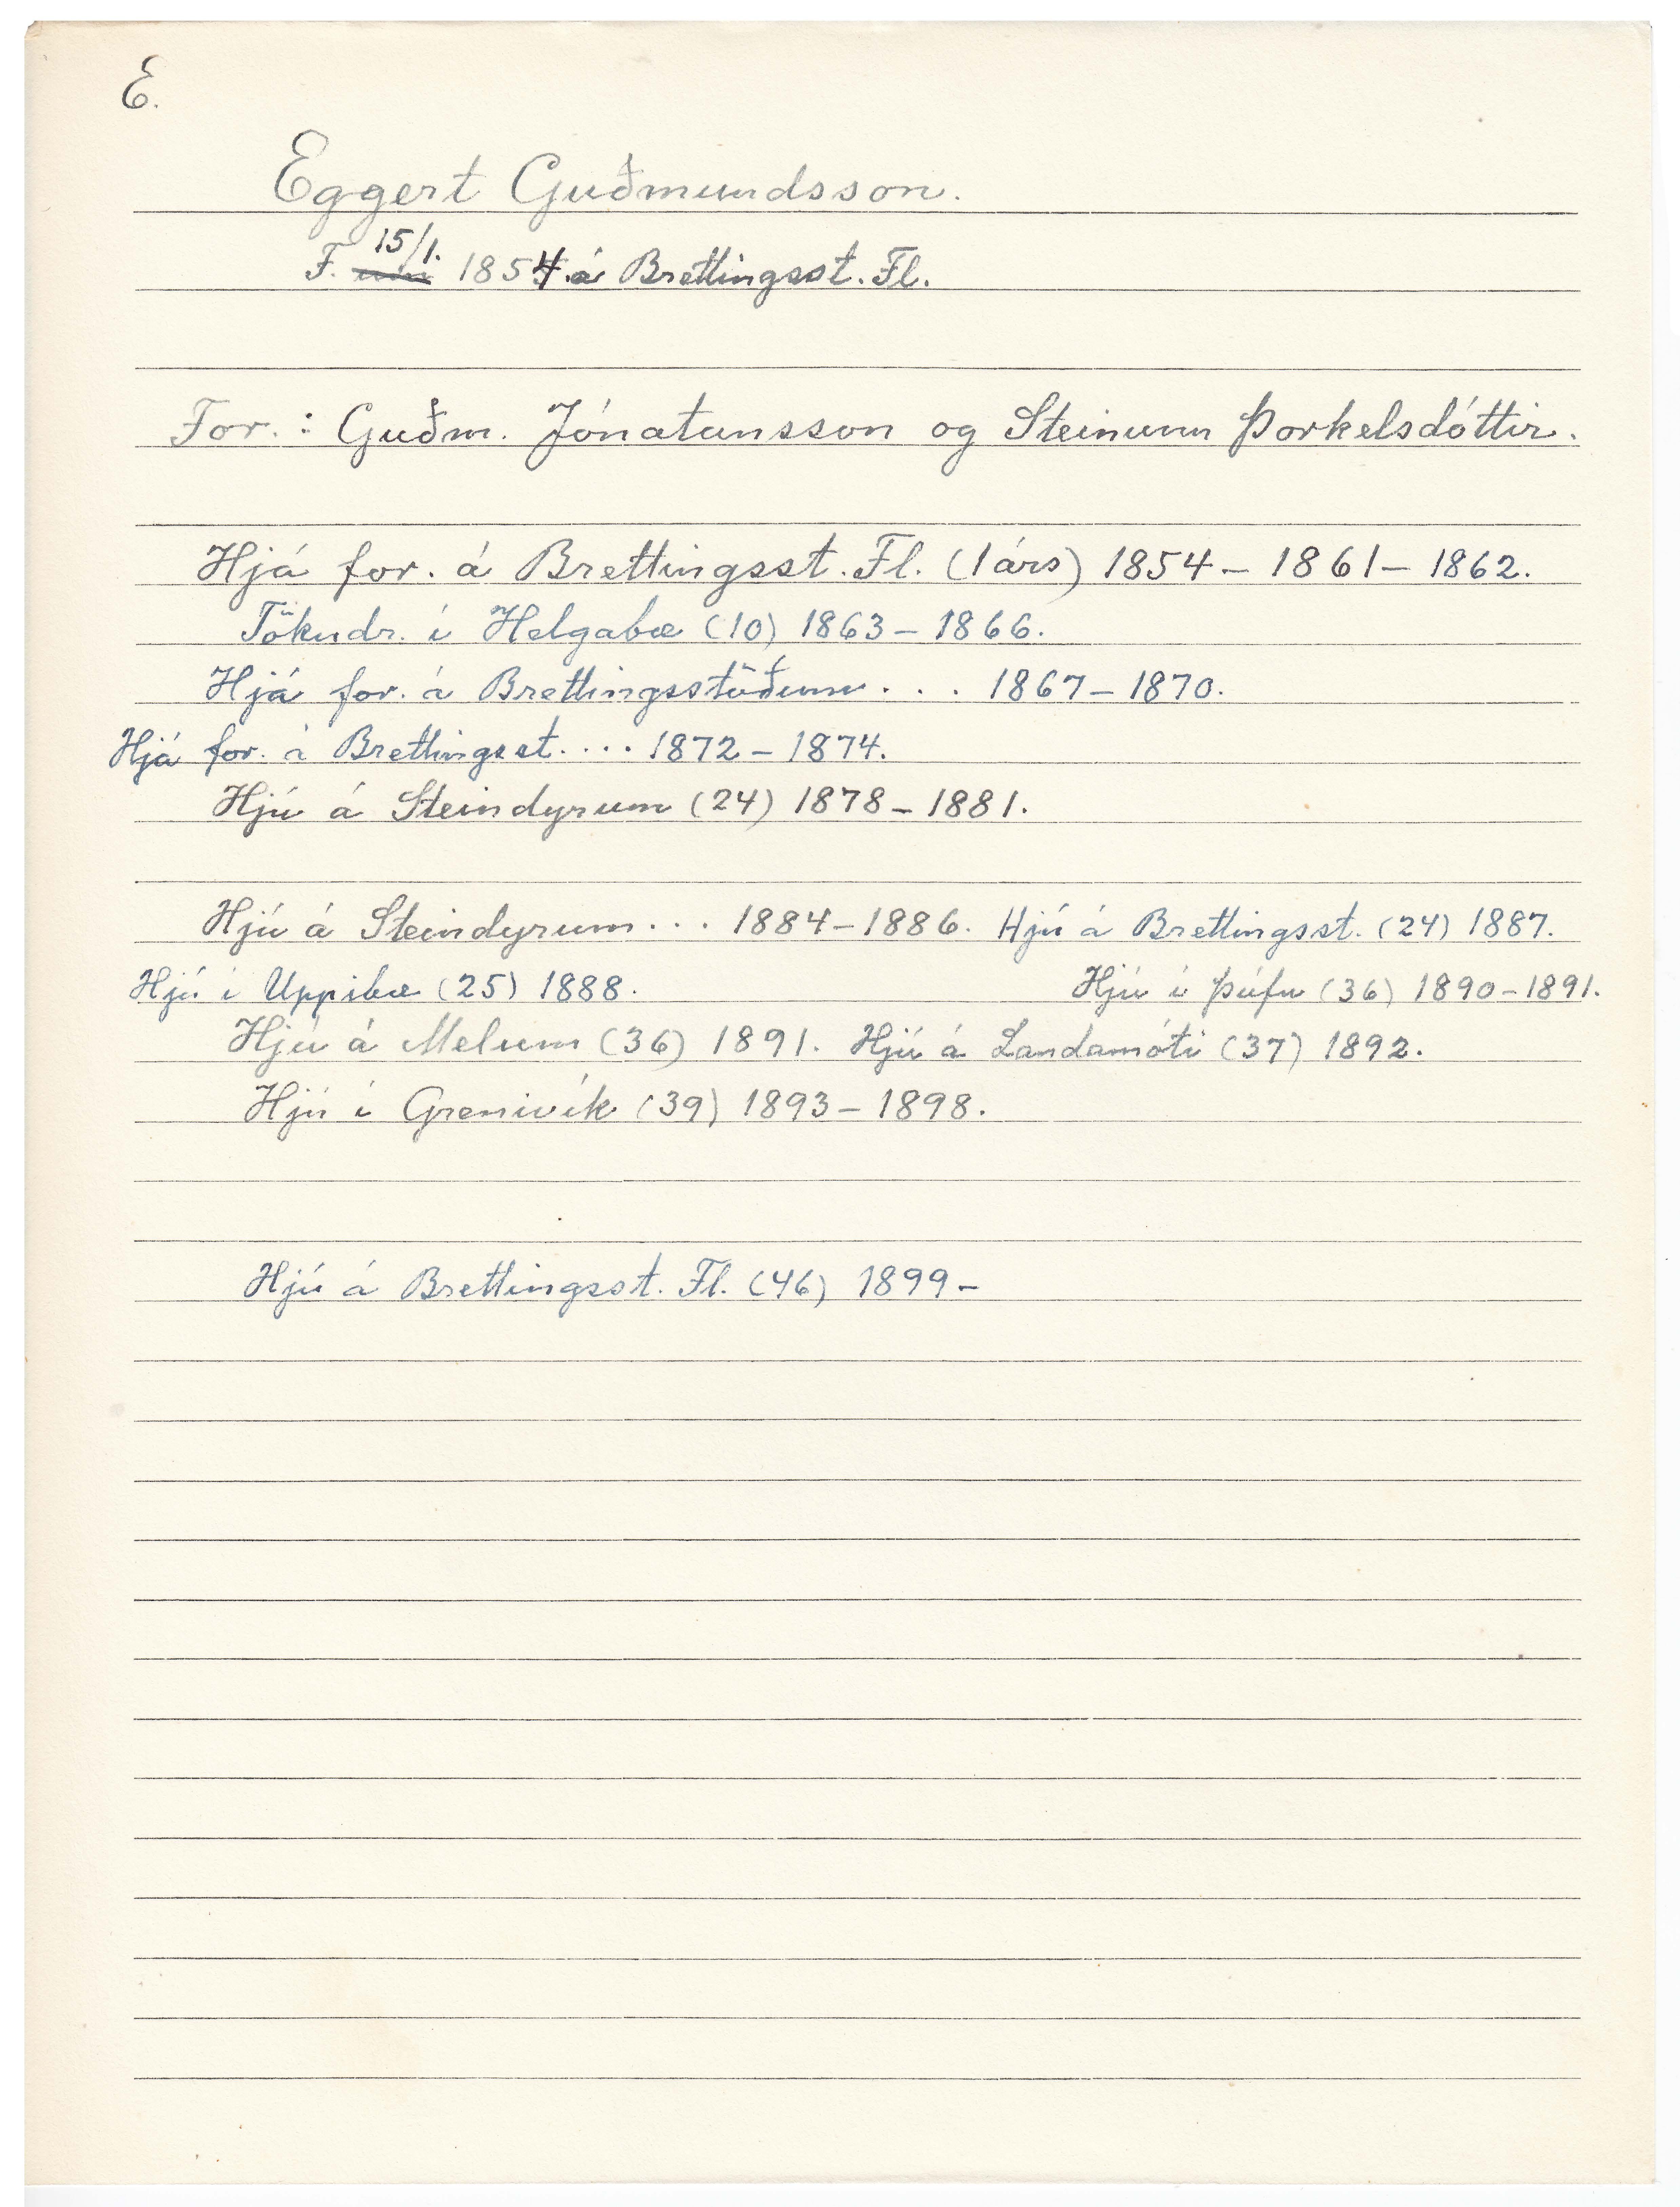 E.
Eggert Guðmundsson.
15/1.
F. um 1854. á Brettingsst. Fl.
For.: Guðm. Jónatansson og Steinunn Þorkelsdóttir.
Hjá for. á Brettingsst. Fl. (1 árs) 1854 – 1861 – 1862.
Tökudr. í Helgabæ (10) 1863 – 1866.
Hjá for. á Brettingsstöðum . . . 1867 – 1870.
Hjá for. á Brettingsst. . . . 1872 – 1874.
Hjú á Steindyrum (24) 1878 – 1881.
Hjú á Steindyrum . . . 1884 – 1886. Hjú á Brettingsst. (24) 1887.
Hjú í Uppibæ (25) 1888. Hjú í Þúfu (36) 1890 – 1891.
Hjú á Melum (36) 1891. Hjú á Landamóti (37) 1892.
Hjú í Grenivík (39) 1893 – 1898.
Hjú á Brettingsst. Fl. (46) 1899 –